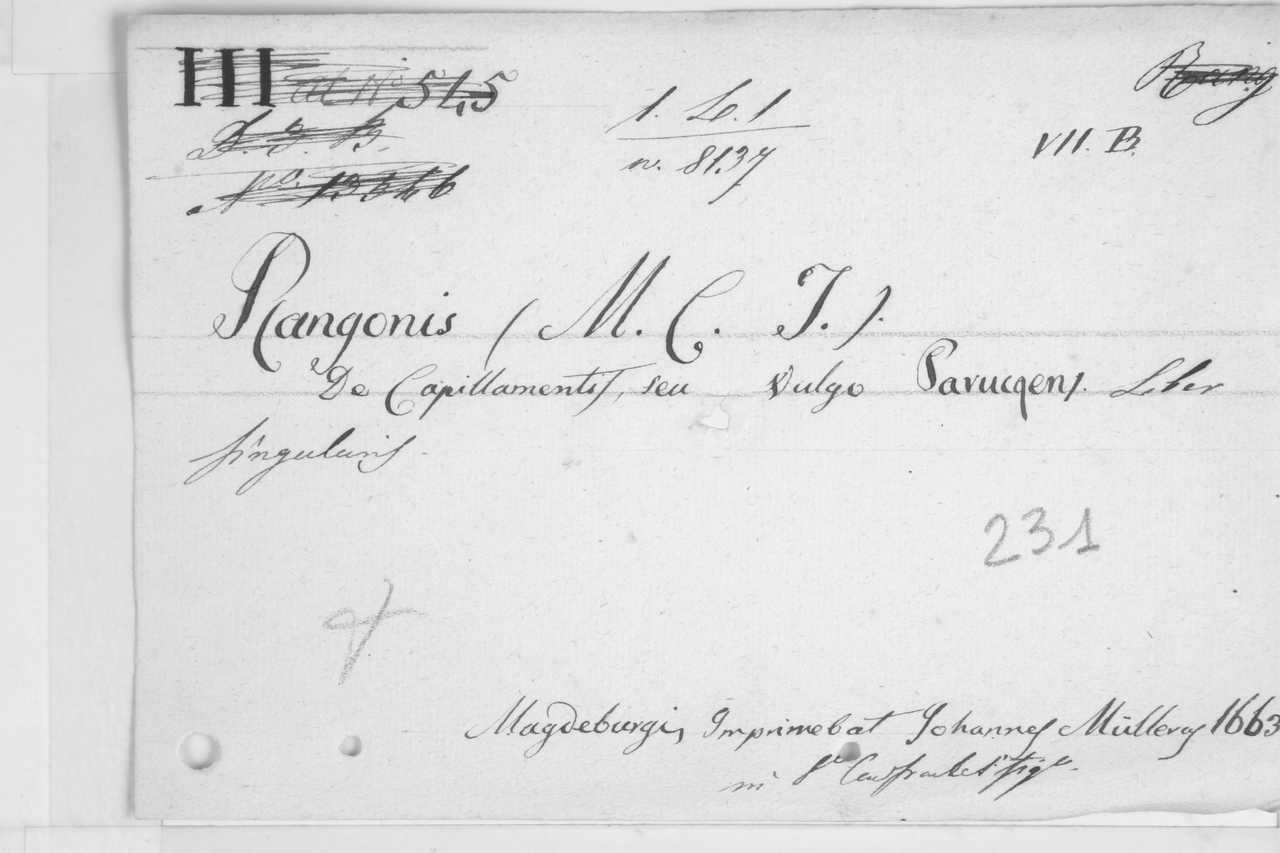 III ad No 545
D. J. B.
No. 13546
1. Le. 1
n. 8137
VII. B.
Rangonis (M. C. T.).
De Capillamentis, seu vulgo Parucqens. Liber
singularis.
231
Magdeburgi, Imprimebat Johannes Müllerus 1663
in 8o